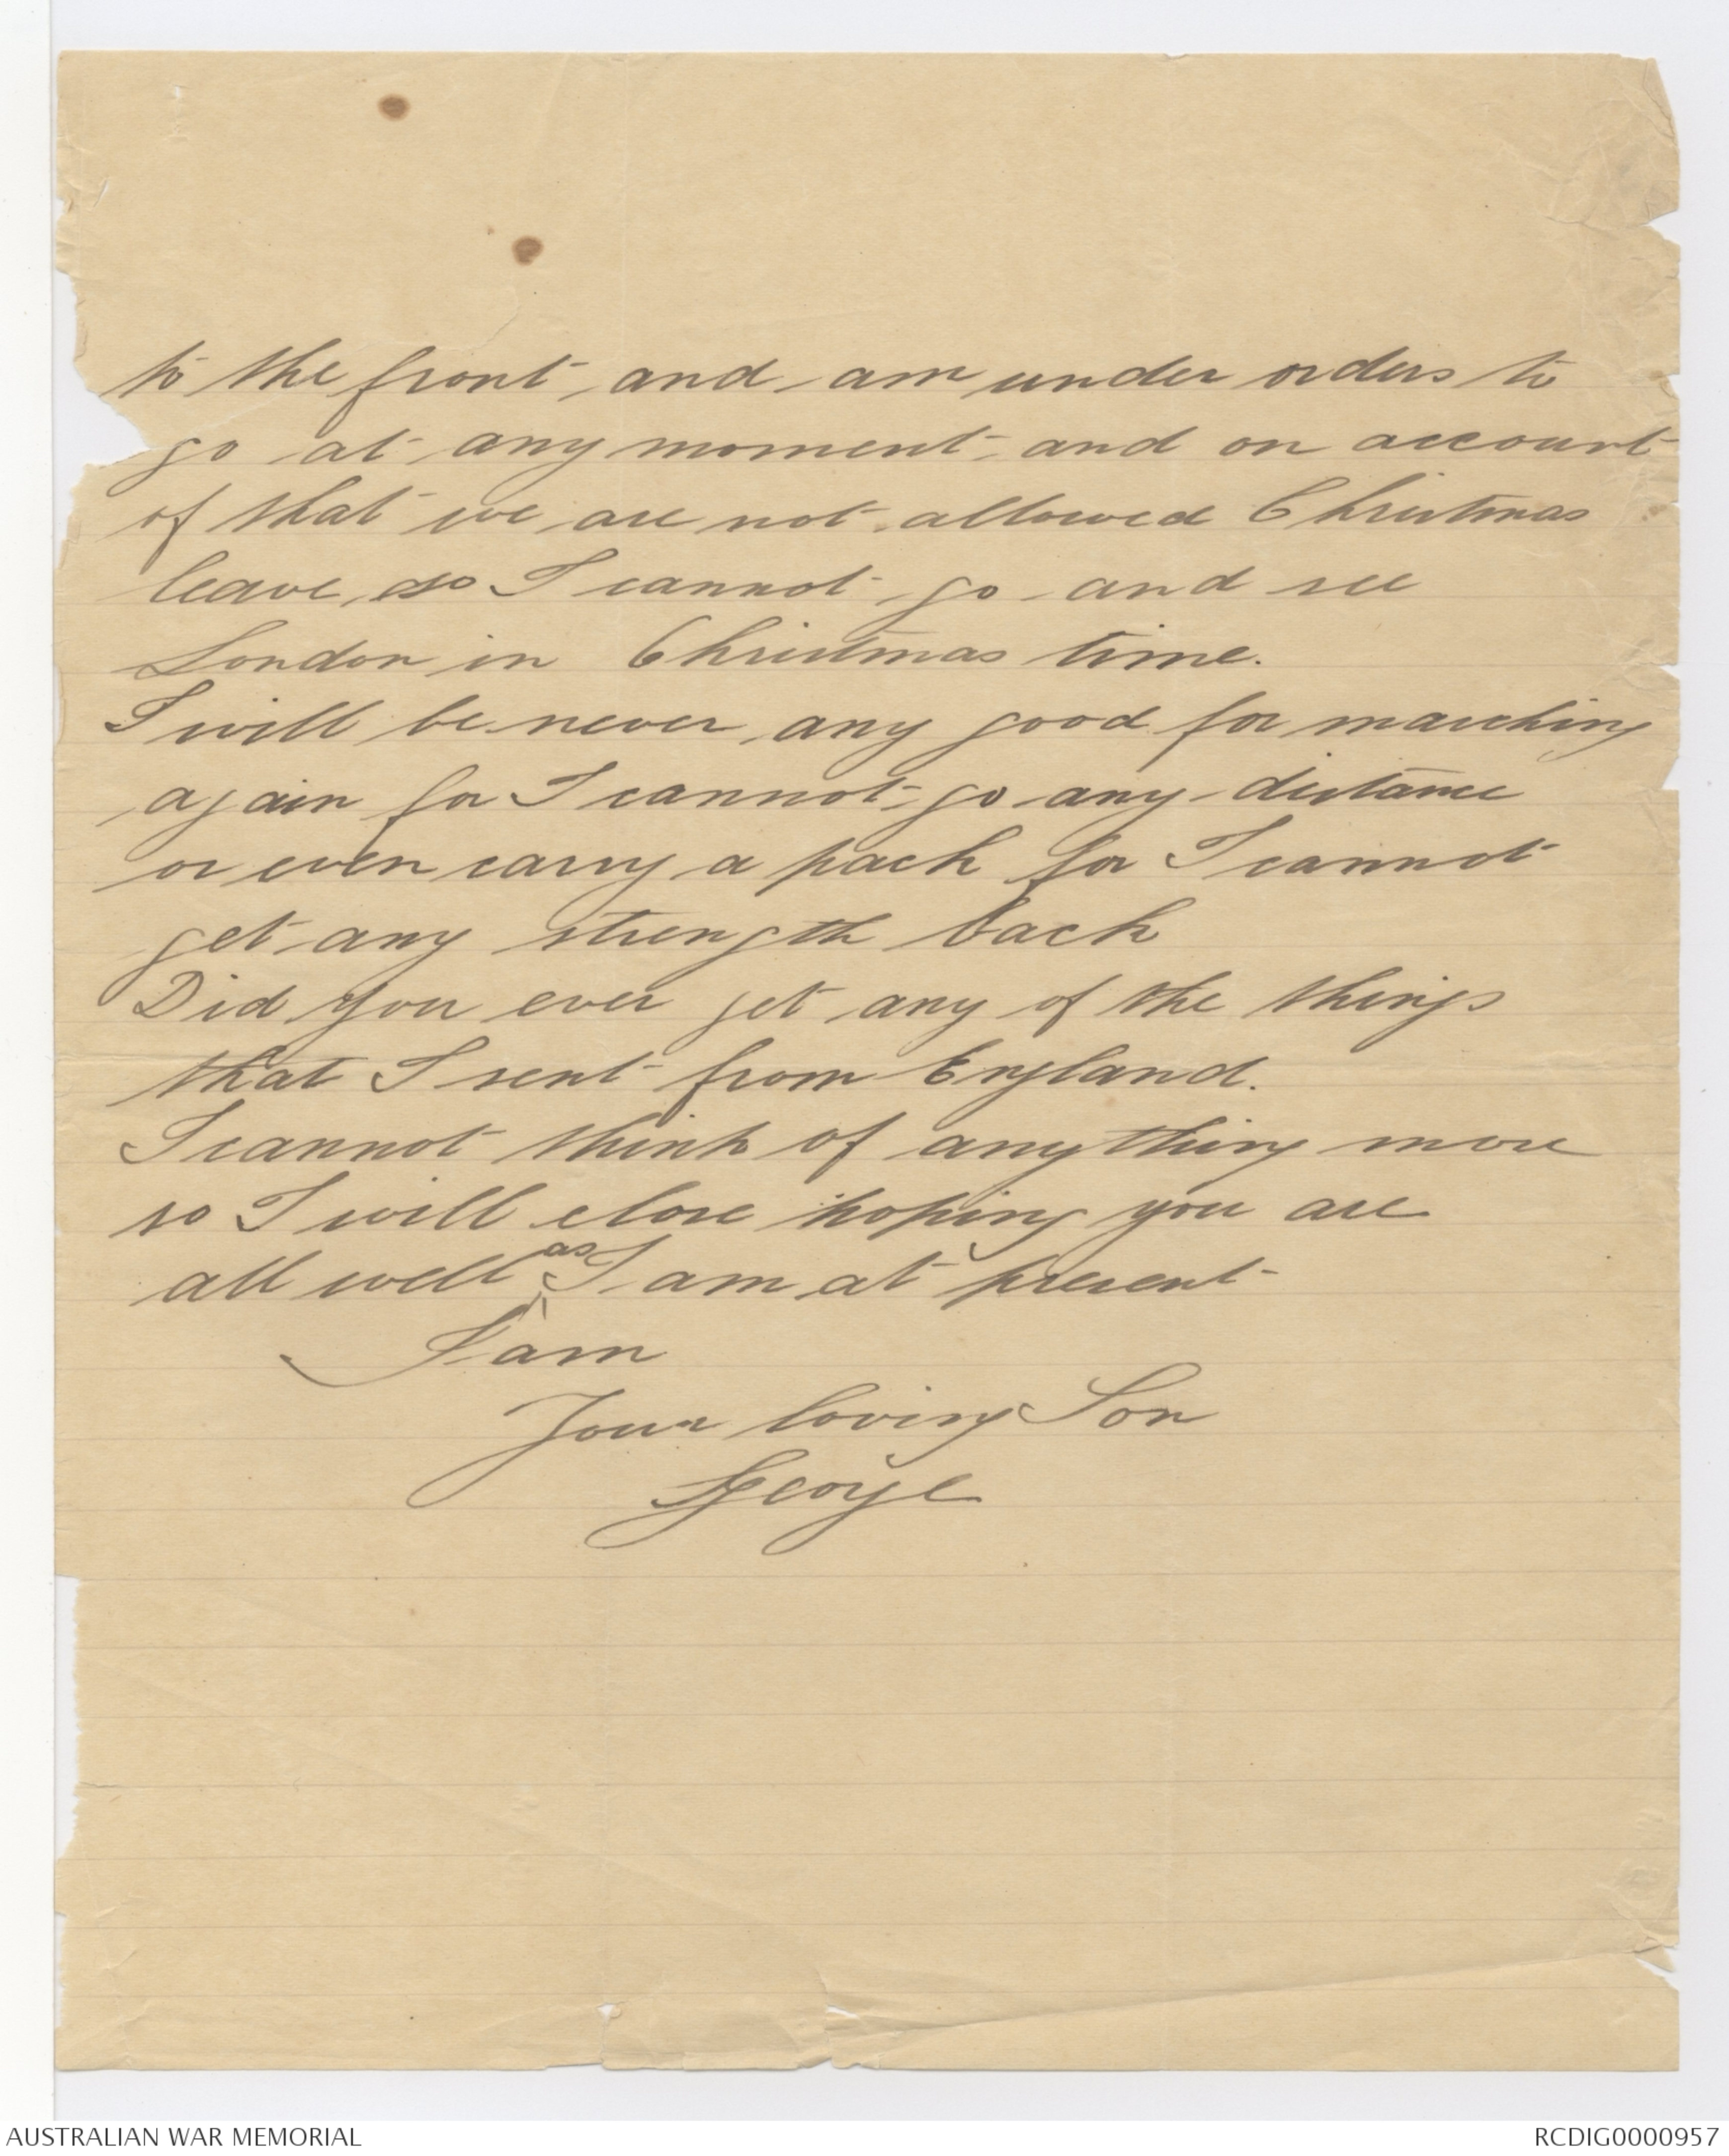 to the front and am under orders to
go at any moment and on account
of that we are not allowed Christmas
leave so I cannot go and see
London in Christmas time.
I will be never any good for marching
again for I cannot go any distance
or even carry a pack for I cannot
get any strength back
Did you ever get any of the things
that I sent from England.
I cannot think of anything more
so I will close hoping you are
all well as I am at present
I am
Your loving Son
George
AUSTRALIAN WAR MEMORIAL
RCDIG0000957